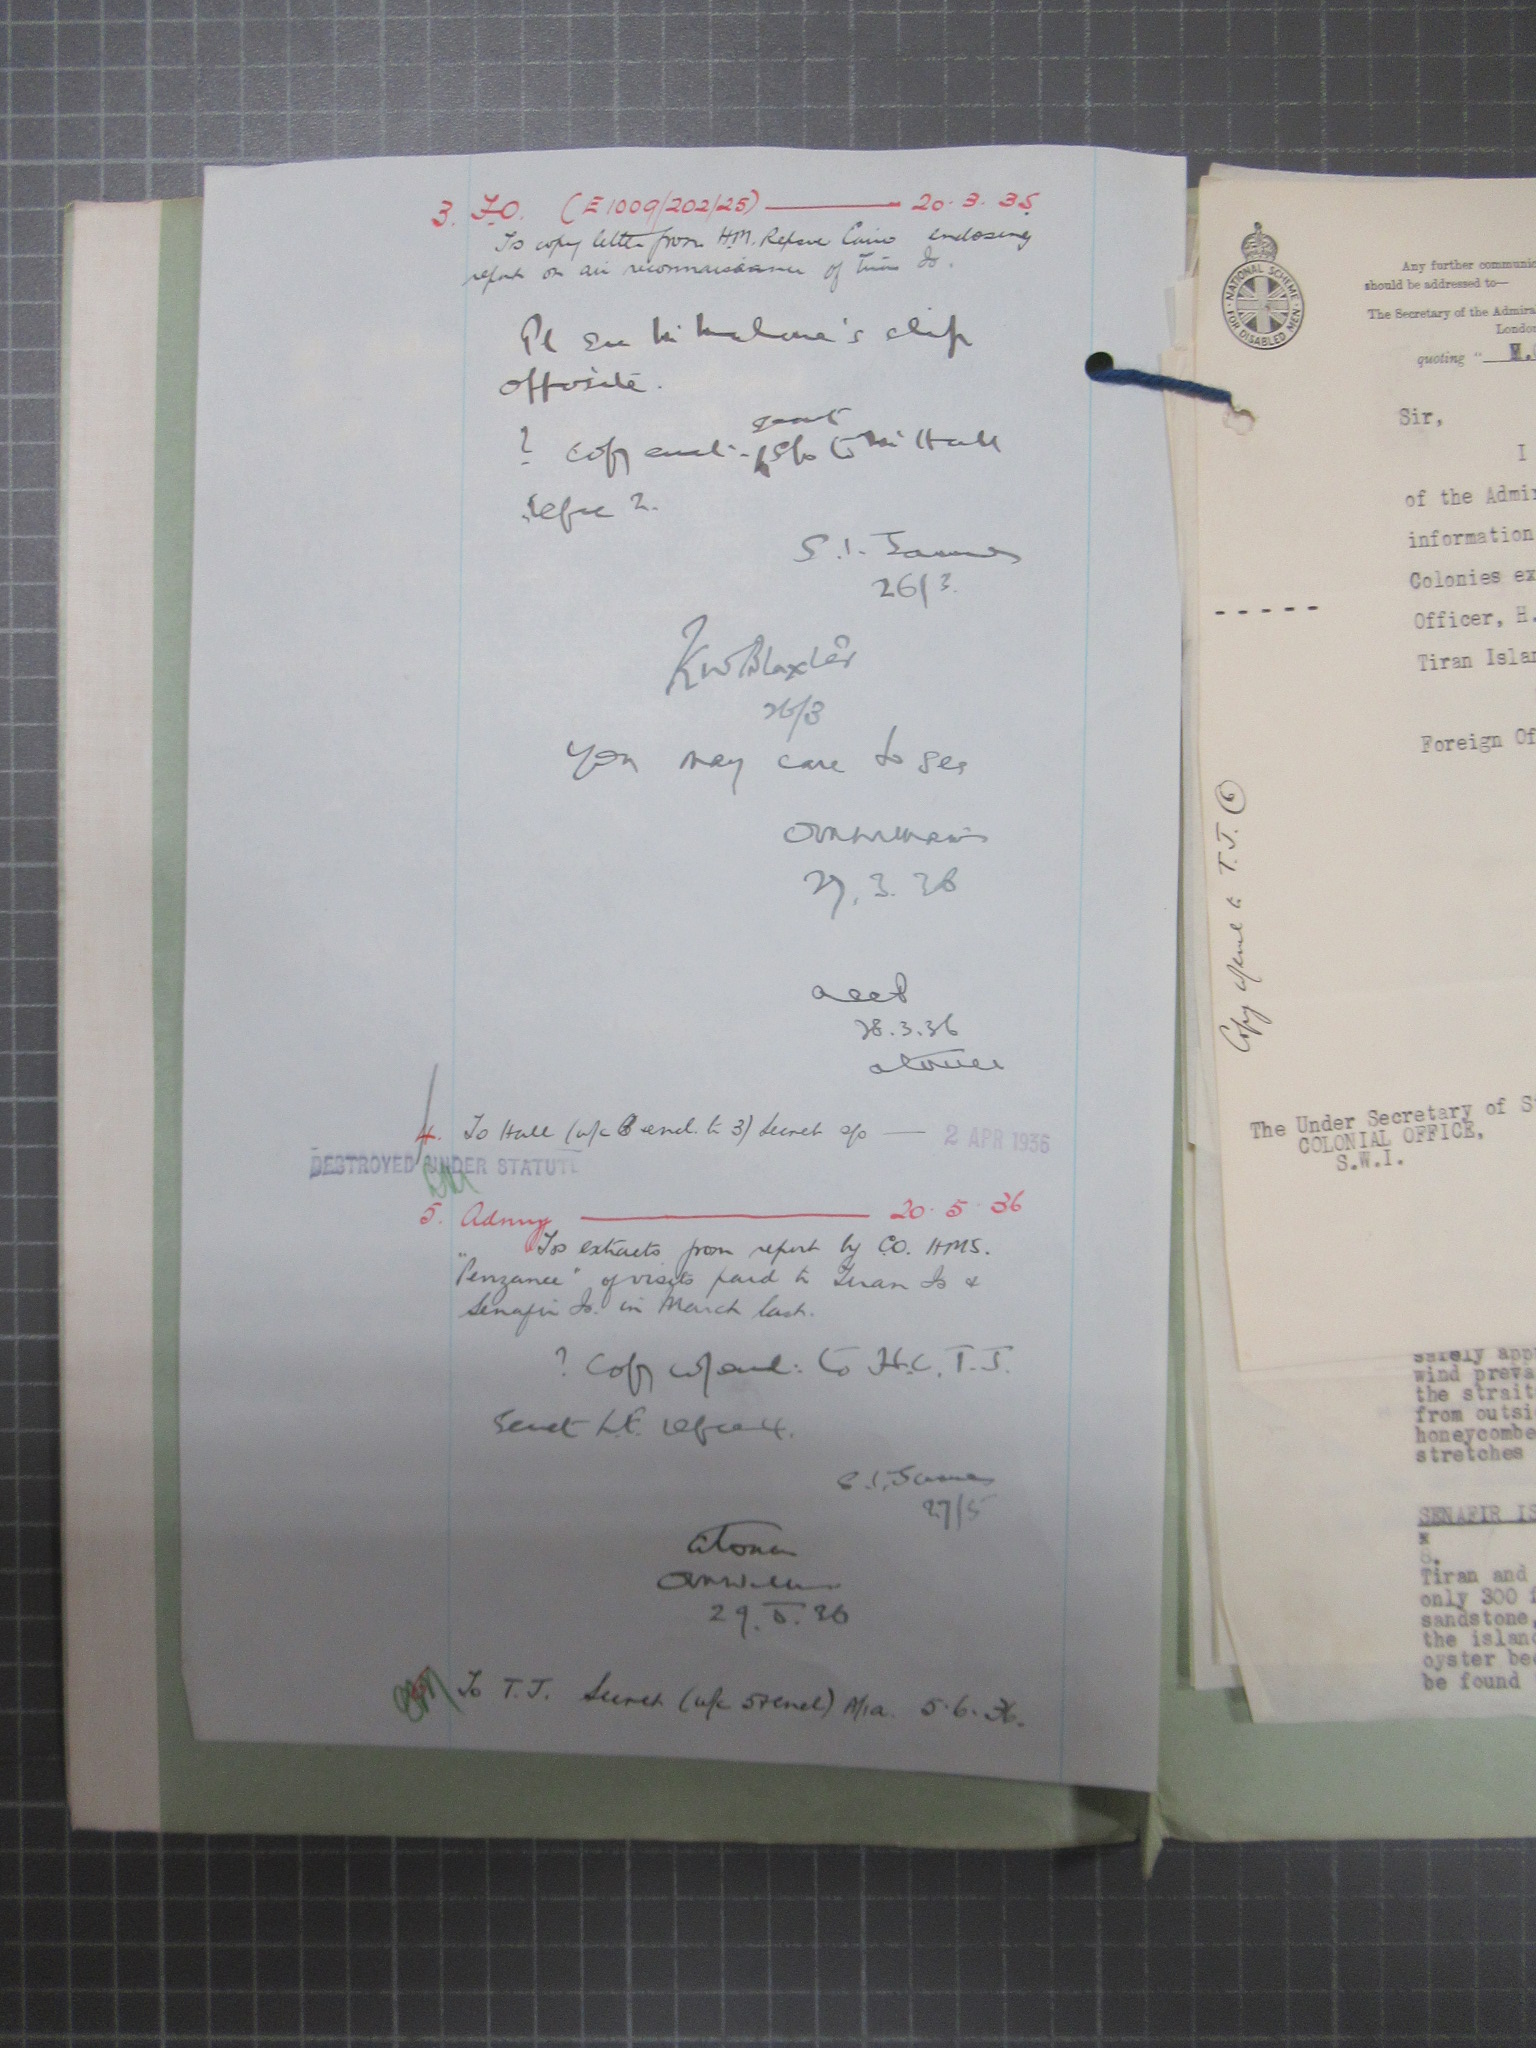 3. F.O. (E1009/202/25) 20.3.35
Ts copy letter from H.M. Represve Cairo enclosing
report on air reconnaissance of Tiran Is.
Pl see Mr Malone's slip
opposite.
? Copy encl. secret s/o to Mr Hall
refce 2.
S.I. James
26/3.
KW Blaxter
26/3
You may care to see
27.3.36
28.3.36
4. To Hall (w/c encl. to 3) Secret s/o 2 APR 1936
DESTROYED UNDER STATUTE
5. Admty 20.5.36
Tss extracts from report by C.O. H.M.S.
"Penzance" of visits paid to Tiran Is &
Senafir Is. in March last.
? Copy w/encl: to H.C. T.J.
Secret refce 4.
S.I. James
27/5
29.5.36
To T.J. Secret (w/c 5 & encl) 5.6.36.
NATIONAL SCHEME
FOR DISABLED MEN
Any further communic
should be addressed to—
The Secretary of the Admira
London
quoting "
Sir,
I
of the Admir
information
Colonies ex
Officer, H.
Tiran Islan
Foreign Of
Copy w/encl to T.J. (6)
The Under Secretary of St
COLONIAL OFFICE,
S.W.I.
safely app
wind preva
the strait
from outsi
honeycombe
stretches
SENAFIR IS
8.
Tiran and
only 300 f
sandstone,
the island
oyster bed
be found